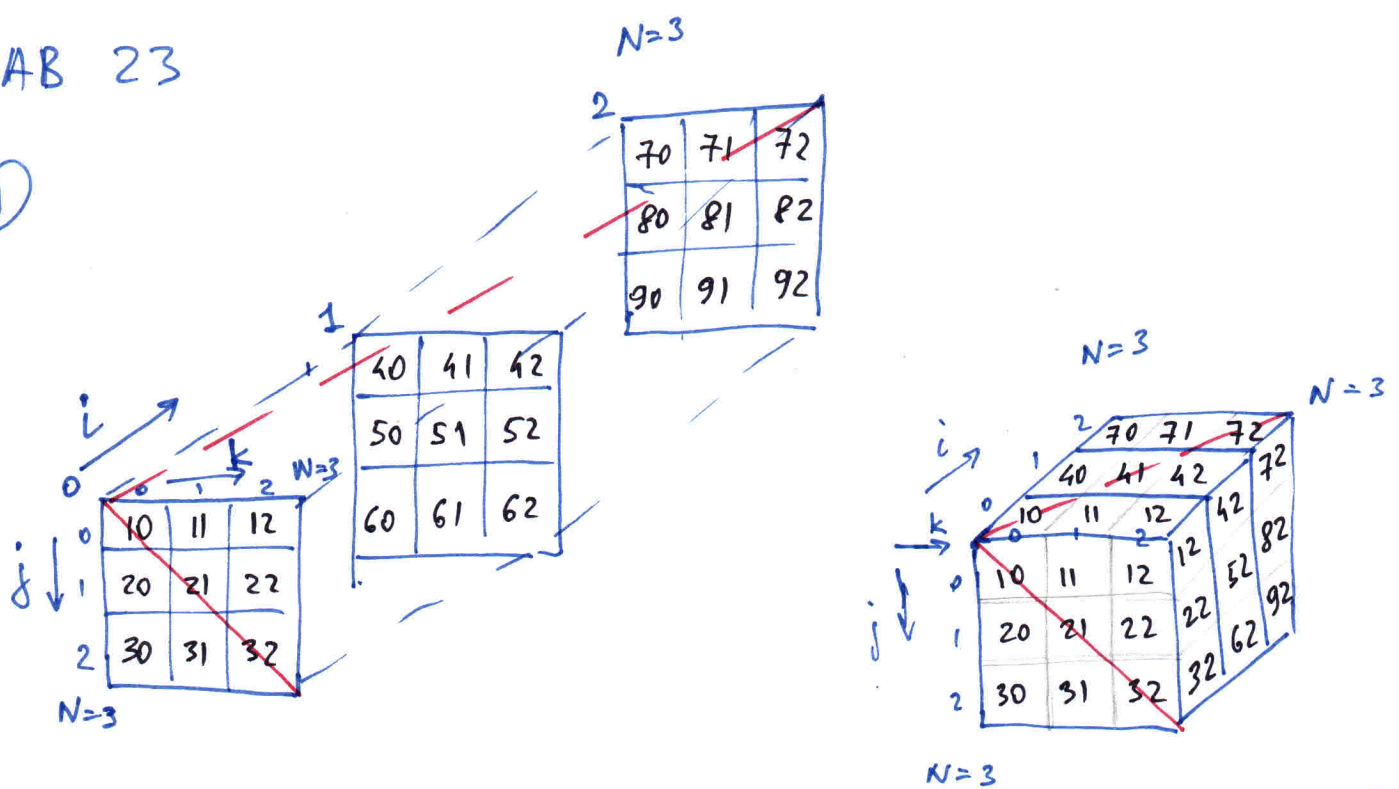 AB 23
N=3
2
70 71 72
80 81 82
90 91 92
1
40 41 42
50 51 52
60 61 62
i
k
0
0 1 2
N=3
j
0 10 11 12
1 20 21 22
2 30 31 32
N=3
N=3
N=3
i
2 70 71 72
1 40 41 42
0 10 11 12
k
0 1 2
j
0 10 11 12
1 20 21 22
2 30 31 32
12 42 72
22 52 82
32 62 92
N=3